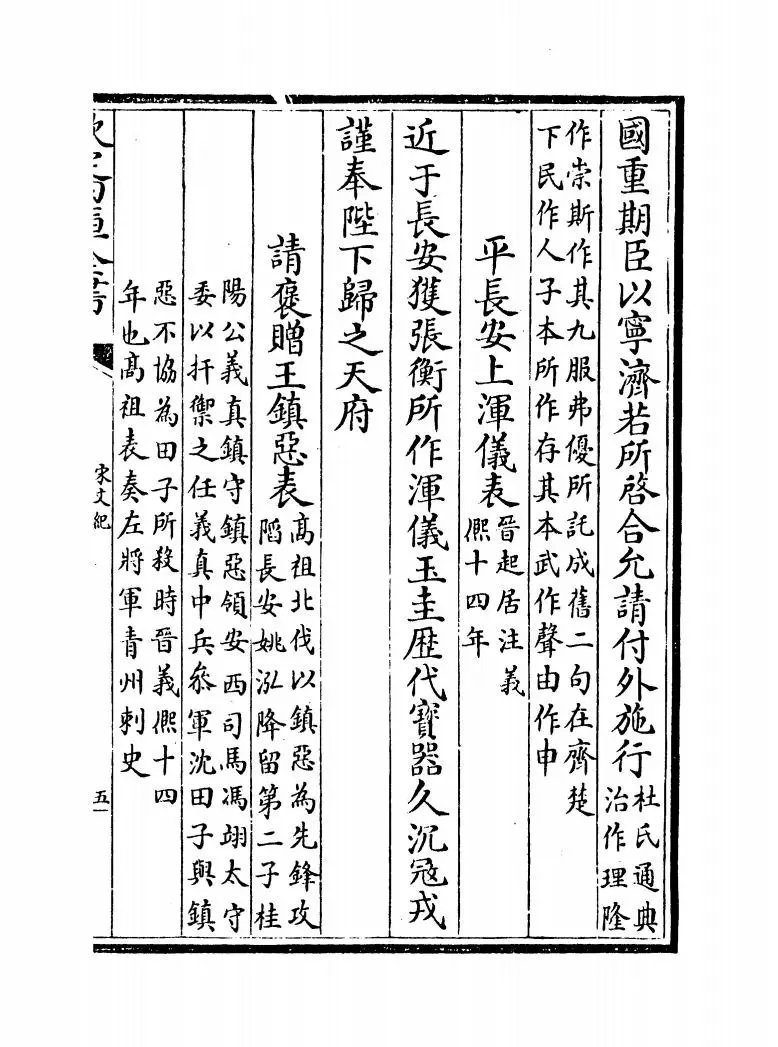 國重期臣以寧濟若所啓合允請付外施行杜氏通典
治作理隆
作崇斯作其九服弗優所託成舊二句在齊楚
下民作人子本所作存其本武作聲由作申
平長安上渾儀表晉起居注義
熈十四年
近于長安獲張衡所作渾儀玉圭歷代寳器久沉冦戎
謹奉陛下歸之天府
請褒贈王鎮惡表髙祖北伐以鎮惡為先鋒攻
陷長安姚泓降留第二子桂
陽公義真鎮守鎮惡領安西司馬馮翊太守
委以扞禦之任義真中兵叅軍沈田子與鎮
惡不協為田子所殺時晉義熈十四
年也髙祖表奏左將軍青州刺史
宋文紀
五